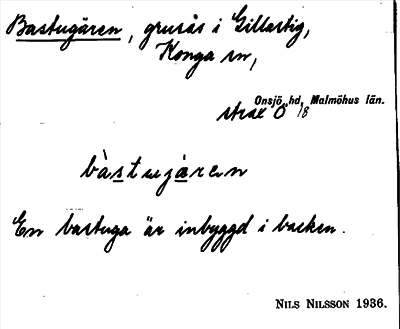 Bastugären, grusås i Gillastig,
Konga sn,
Onsjö hd, Malmöhus län.
strax Ö 1/8
bàstugæren
En bastuga är inbyggd i backen.
NILS NILSSON 1936.